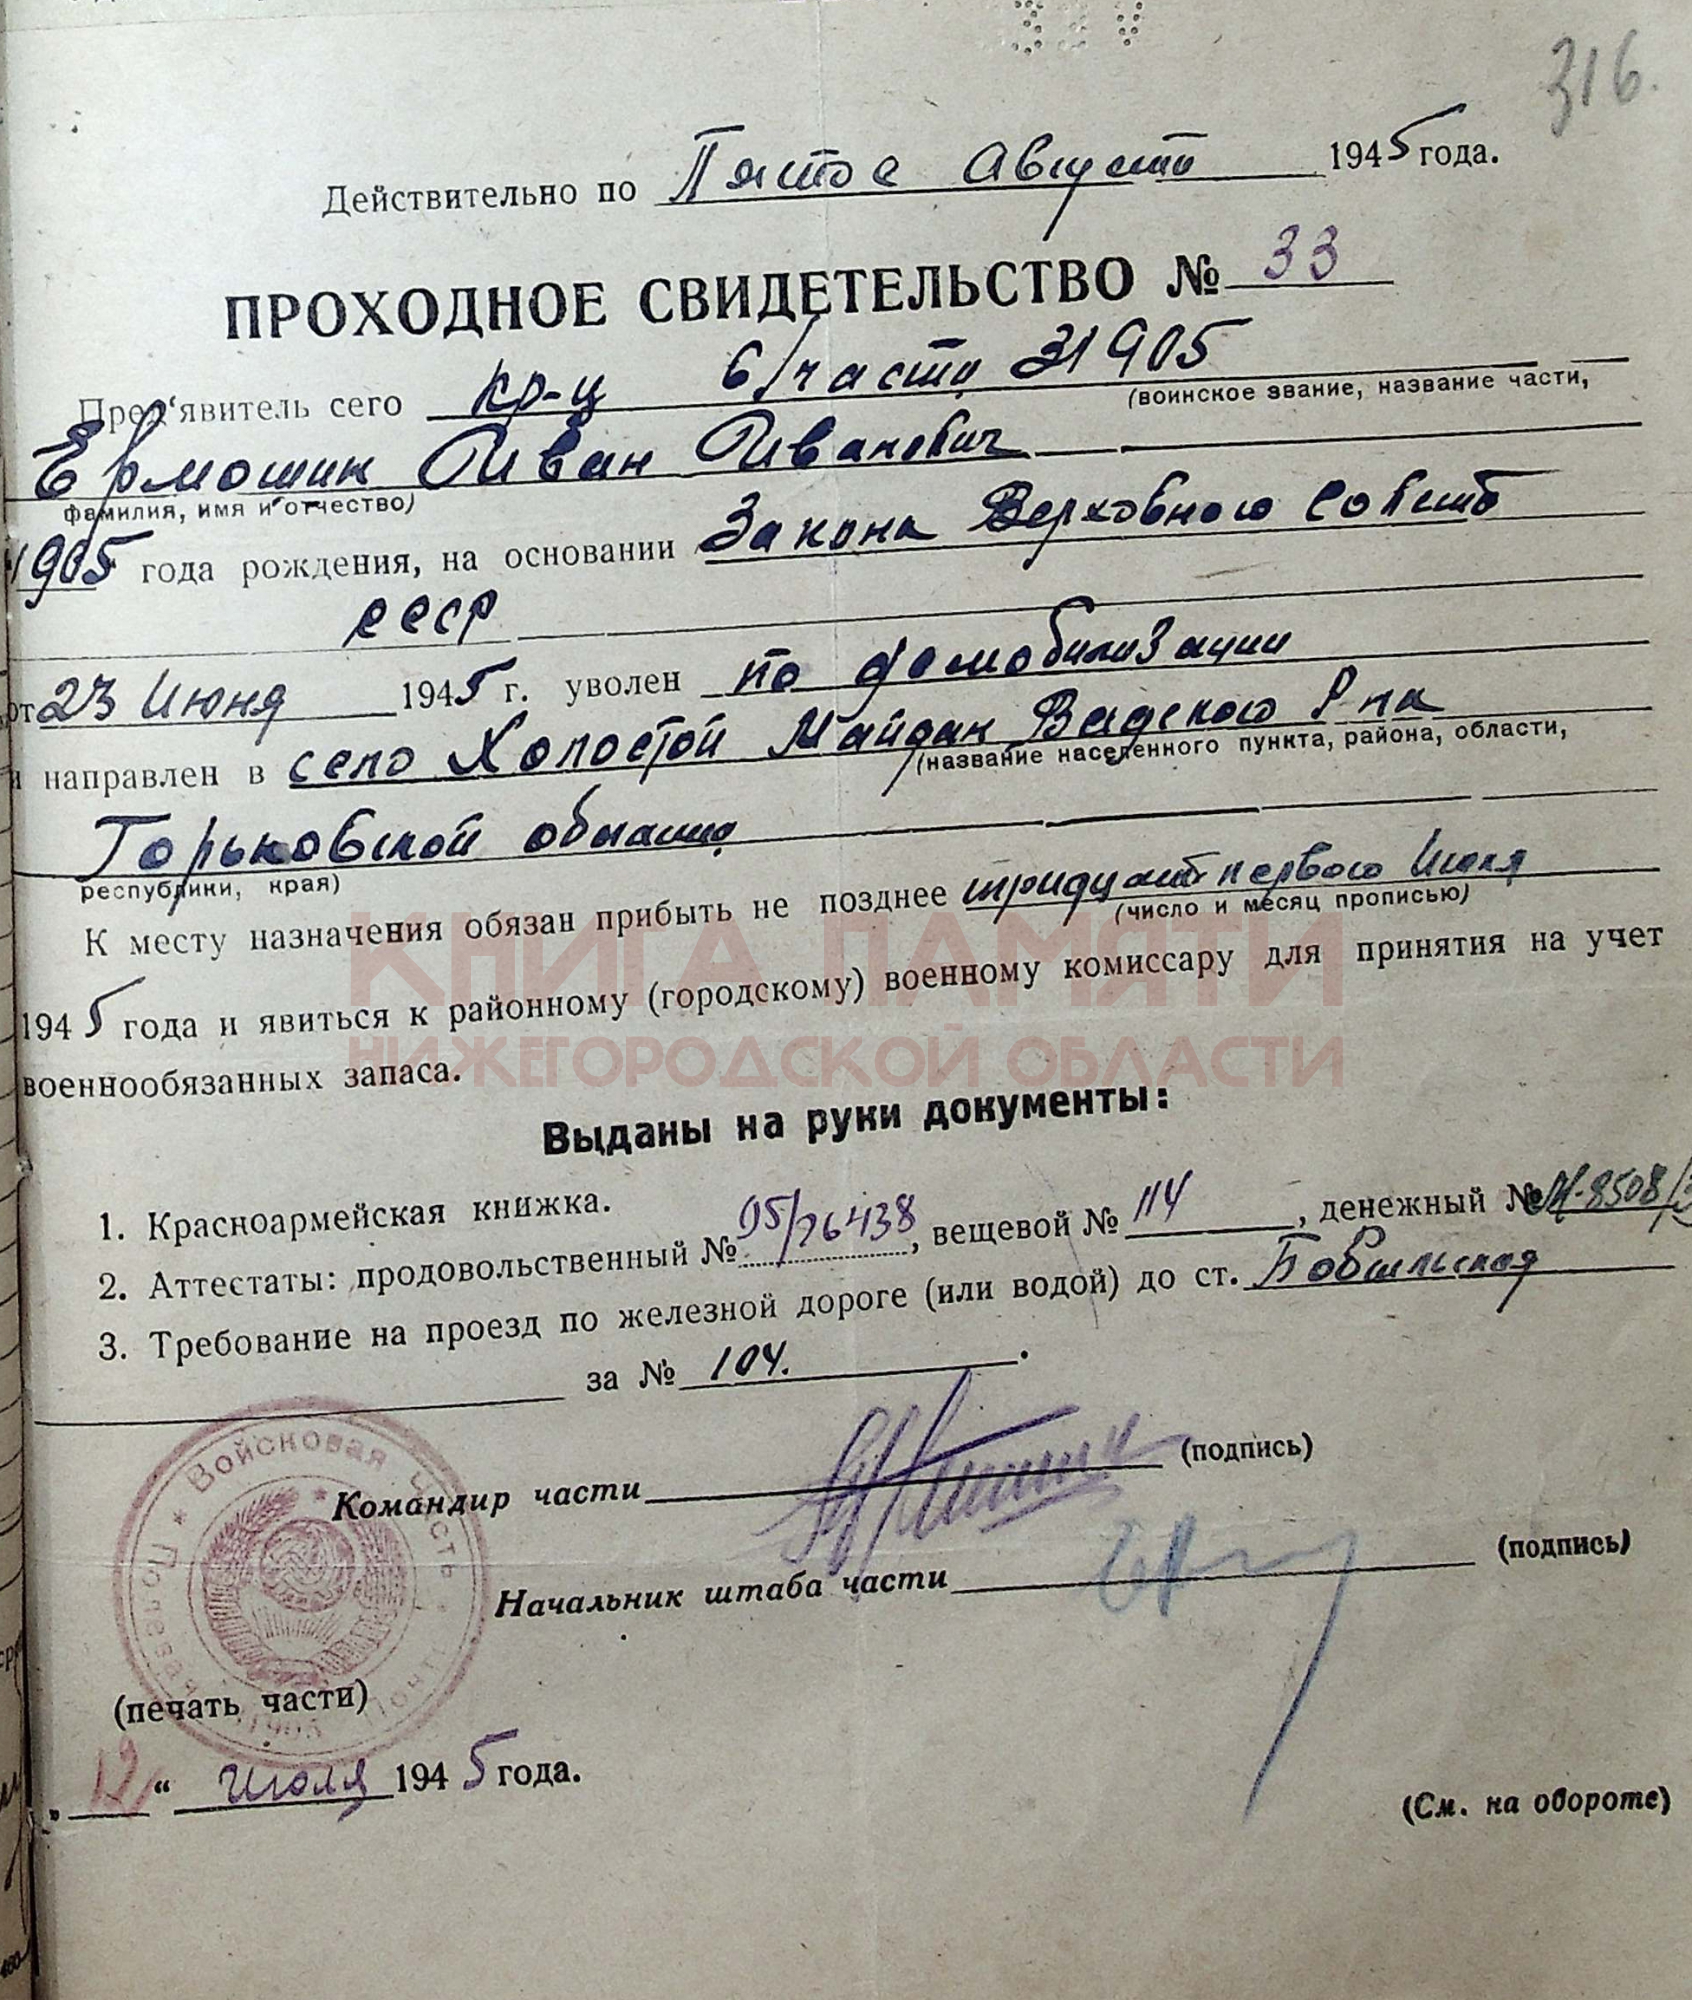 316.
Действительно по Пятое Августа 1945 года.
ПРОХОДНОЕ СВИДЕТЕЛЬСТВО № 33
Пред'явитель сего кр-ц в/части 31905
(воинское звание, название части,
Ермошин Иван Иванович
фамилия, имя и отчество)
1905 года рождения, на основании Закона Верховного Совета
СССР
от 23 Июня 1945 г. уволен по демобилизации
и направлен в село Холостой Майдан Вадского Р-на
(название населенного пункта, района, области,
Горьковской области
республики, края)
К месту назначения обязан прибыть не позднее тридцать первого Июля
(число и месяц прописью)
1945 года и явиться к районному (городскому) военному комиссару для принятия на учет
военнообязанных запаса.
КНИГА ПАМЯТИ
НИЖЕГОРОДСКОЙ ОБЛАСТИ
Выданы на руки документы:
1. Красноармейская книжка.
2. Аттестаты: продовольственный № 05/26438, вещевой № 114, денежный №
3. Требование на проезд по железной дороге (или водой) до ст. Бобыльская
за № 104.
Командир части (подпись)
Начальник штаба части (подпись)
Войсковая часть Полевая Почта 31905
(печать части)
„12“ Июля 1945 года.
(См. на обороте)